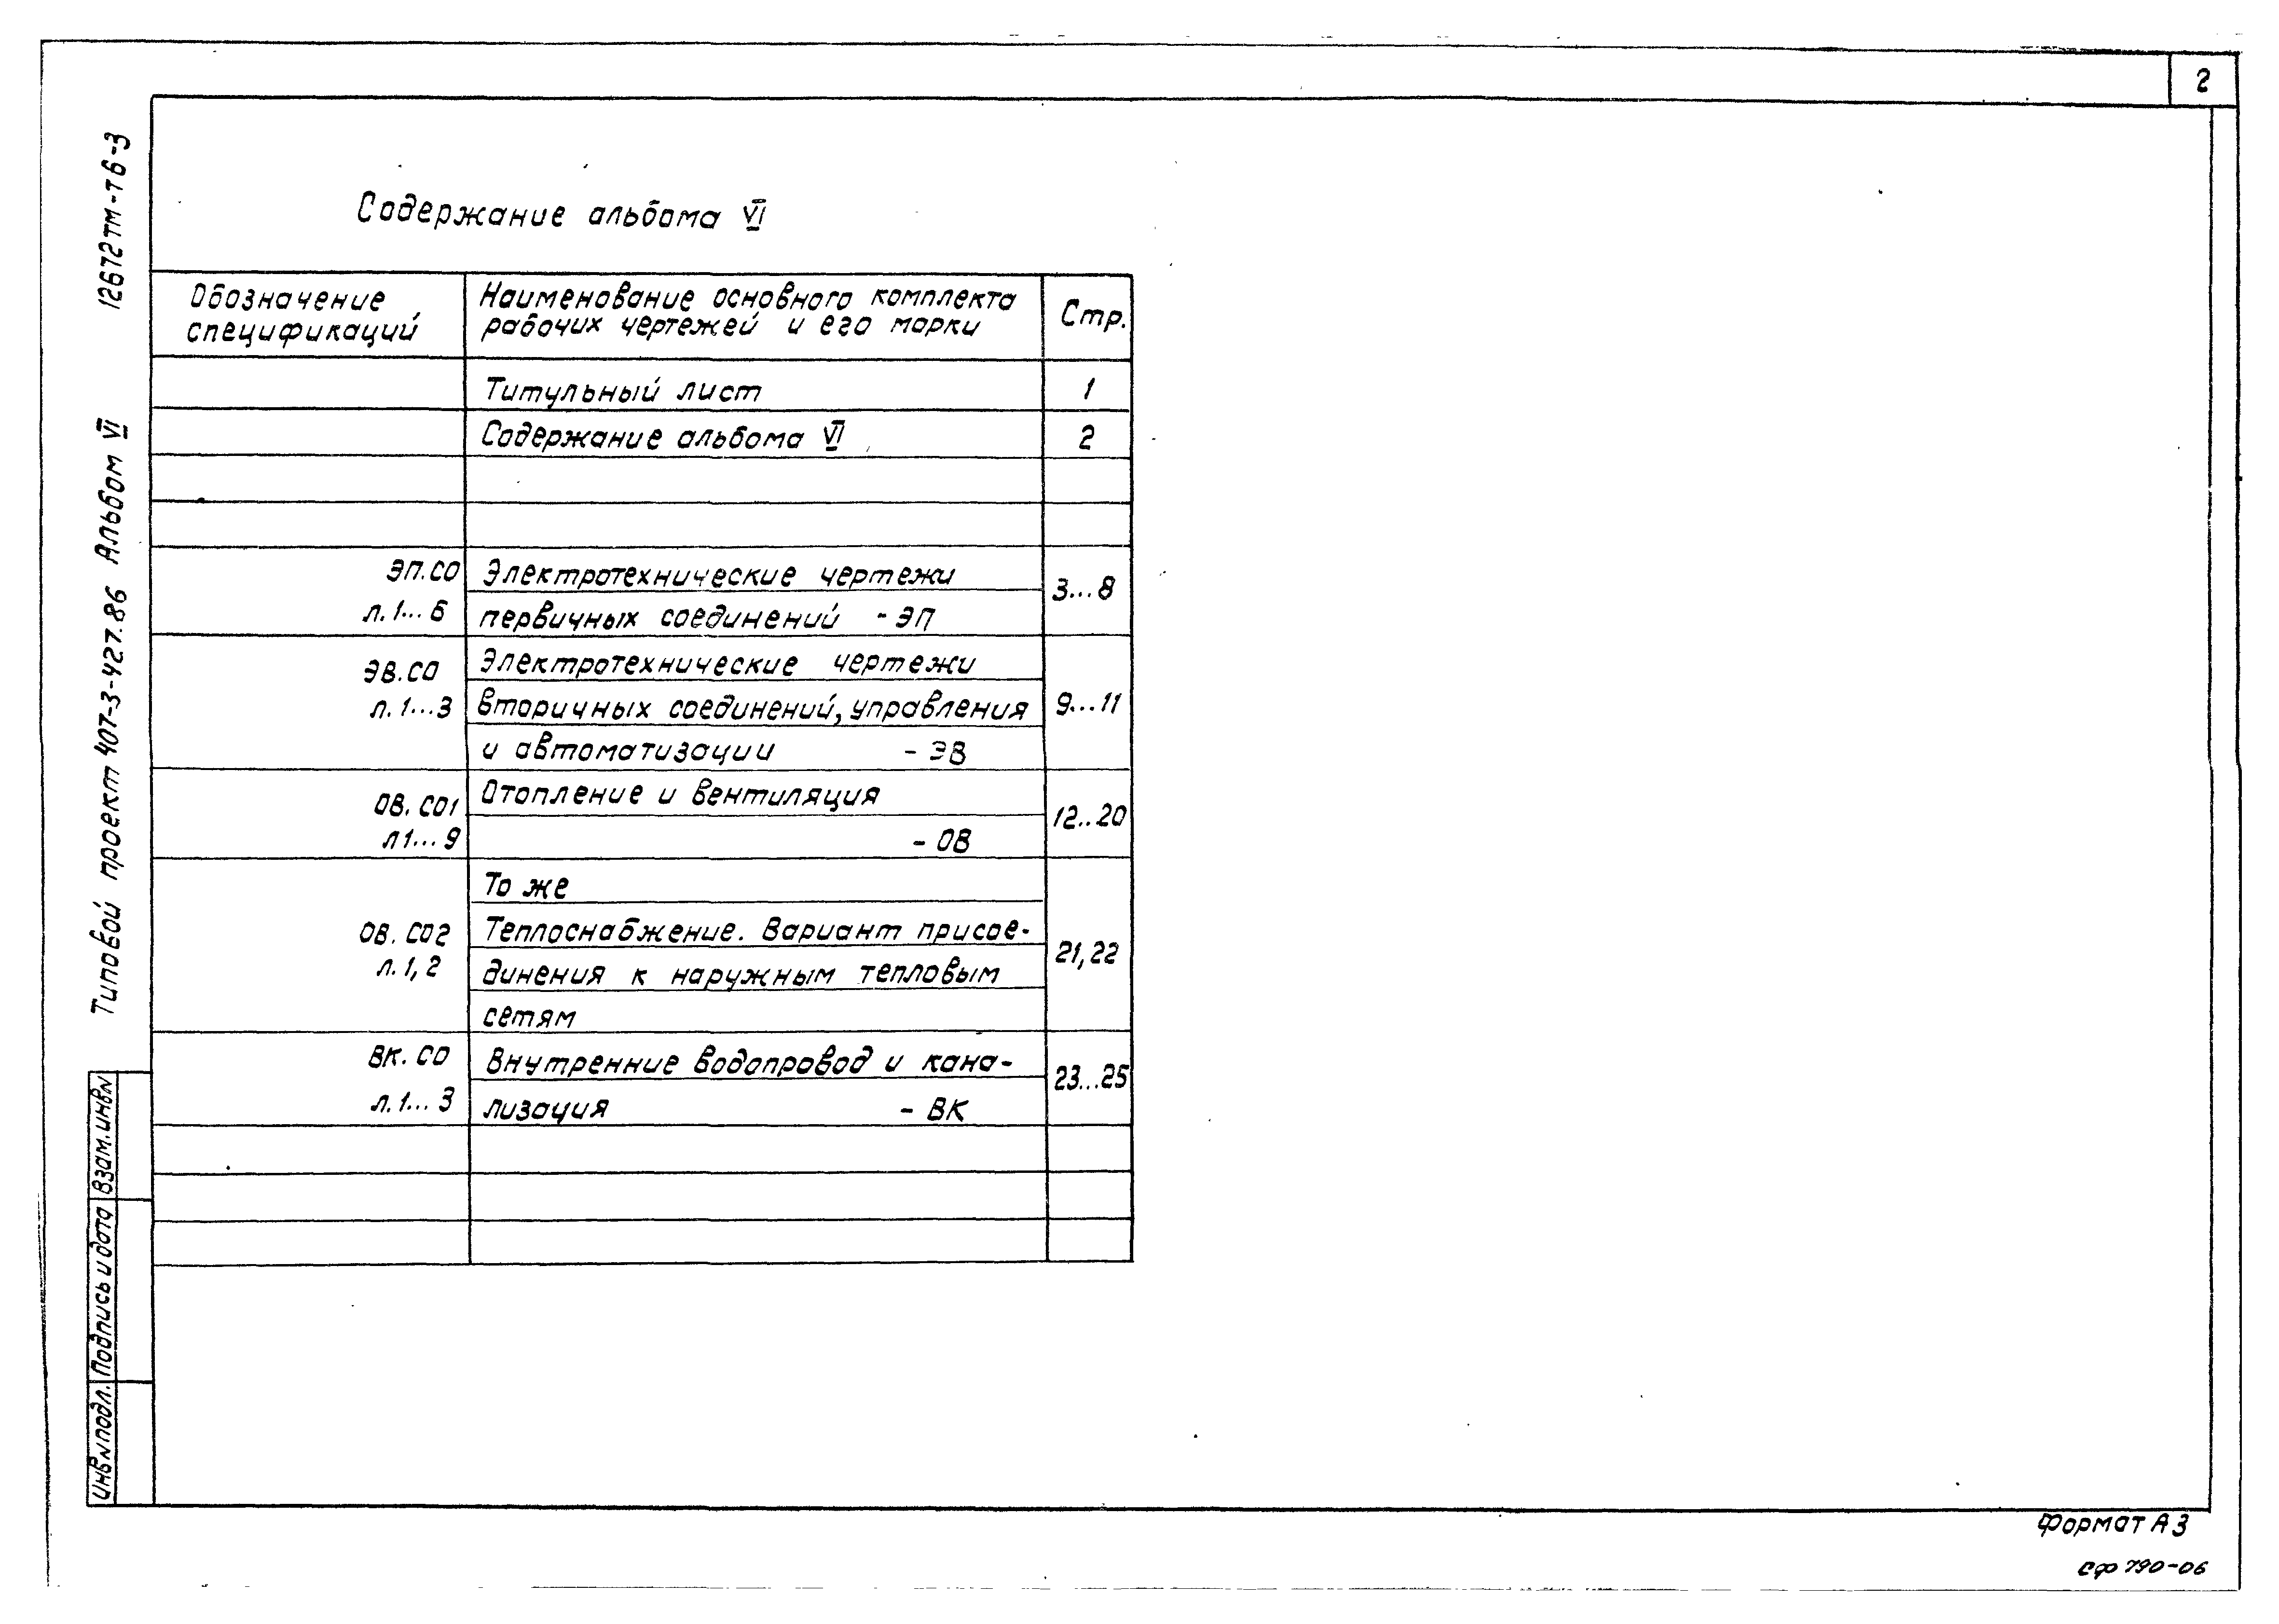 2
12672тм-т6-3
Типовой проект 407-3-427.86 Альбом VI
Содержание альбома VI
Обозначение спецификаций
Наименование основного комплекта рабочих чертежей и его марки
Стр.
Титульный лист 1
Содержание альбома VI 2
ЭП.СО Электротехнические чертежи
л.1...6 первичных соединений - ЭП 3...8
ЭВ.СО Электротехнические чертежи
л.1...3 вторичных соединений, управления 9...11
и автоматизации - ЭВ
ОВ.СО1 Отопление и вентиляция 12..20
л1...9 - ОВ
То же
ОВ.СО2 Теплоснабжение. Вариант присое-
л.1,2 динения к наружным тепловым 21,22
сетям
ВК.СО Внутренние водопровод и кана-
л.1...3 лизация - ВК 23...25
Взам.инв№
Подпись и дата
Инв№подл.
Формат А3
сф 790-06